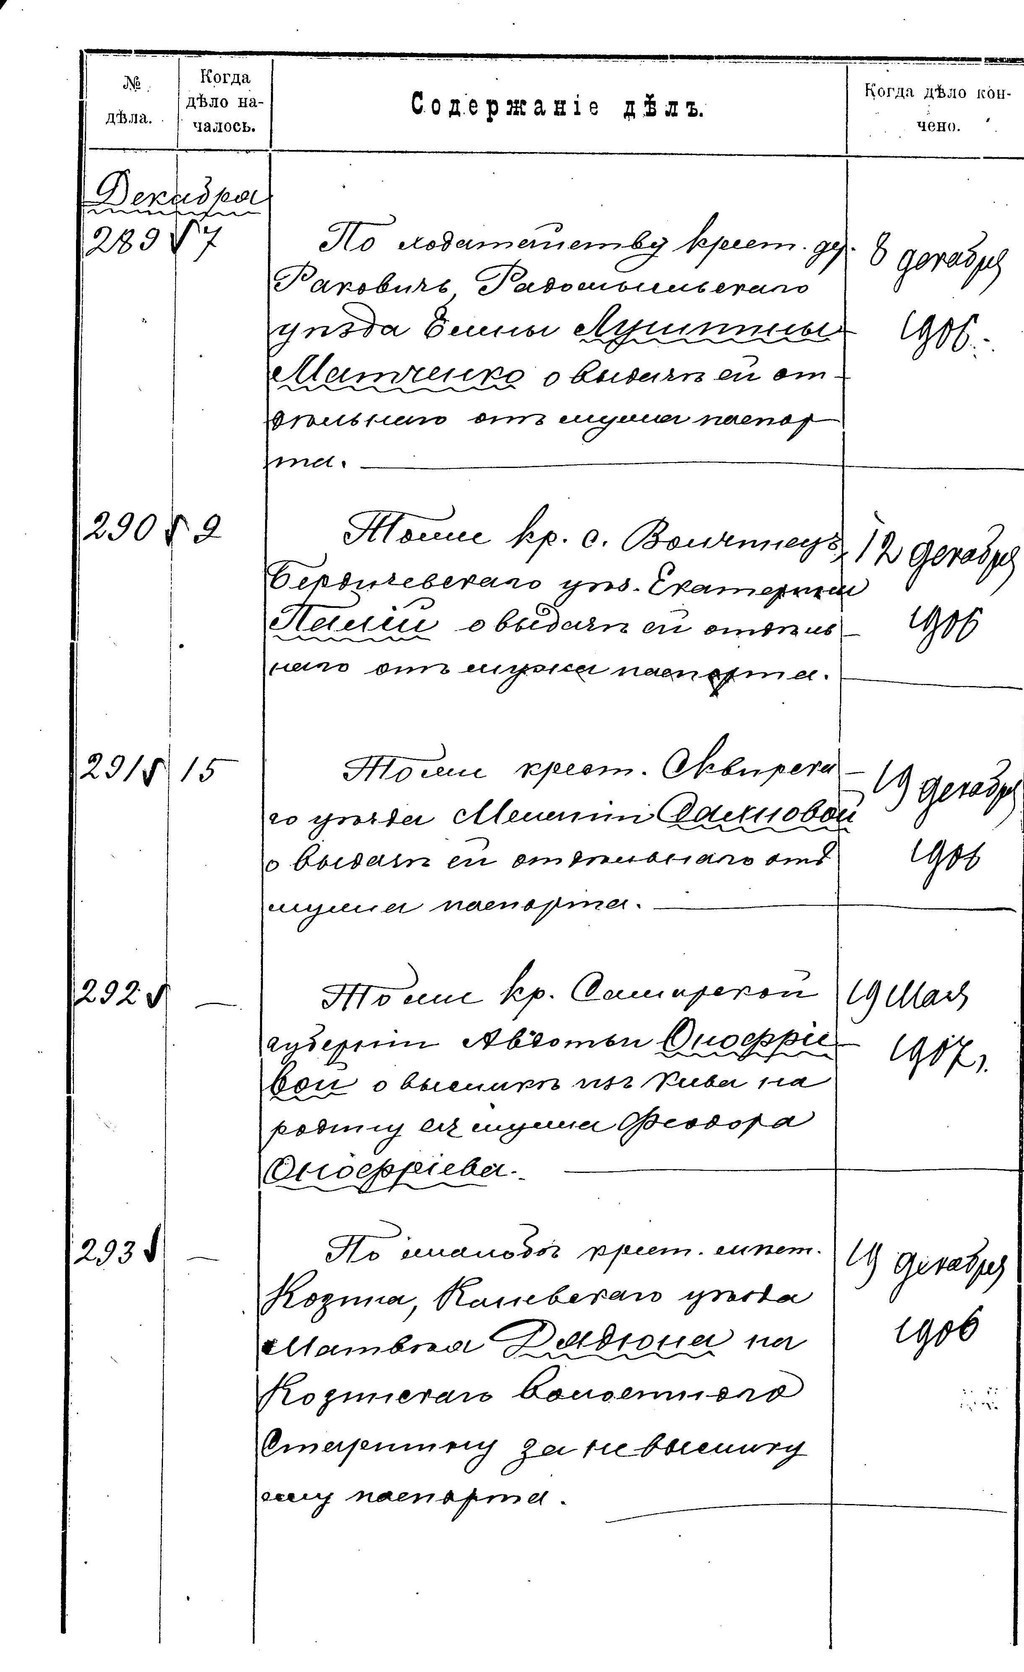 № дѣла.
Когда дѣло на-
чалось.
Содержаніе дѣлъ.
Когда дѣло кон-
чено.
Декабря
289 7 По ходатайству крест. де. 8 декабря
Раковичъ, Радомысльскаго
уѣзда Елены Лушпины 1906.
Матченко о выдачѣ ей от-
дѣльнаго отъ мужа паспор
та.
290 9 Тоже кр. с. Волчинецъ, 12 декабря
Бердичевскаго уѣз. Екатерины
Палій о выдачѣ ей отдѣль 1906
наго отъ мужа паспорта.
291 15 Тоже крест. Сквирска- 19 декабря
го уѣзда Меланіи Саловой
о выдачѣ ей отдѣльнаго отъ 1906
мужа паспорта.
292 — Тоже кр. Самарской 19 Мая
губерніи Авдотьи Оноѳріе- 1907 г.
вой о высылкѣ изъ Кіева на
родину ея мужа Феодора
Оноѳріева.
293 — По жалобѣ крест. мѣст. 19 декабря
Козина, Каневскаго уѣзда
Матвѣя Дядюна на 1906
Козинскаго волостного
Старшину за невысылку
ему паспорта.